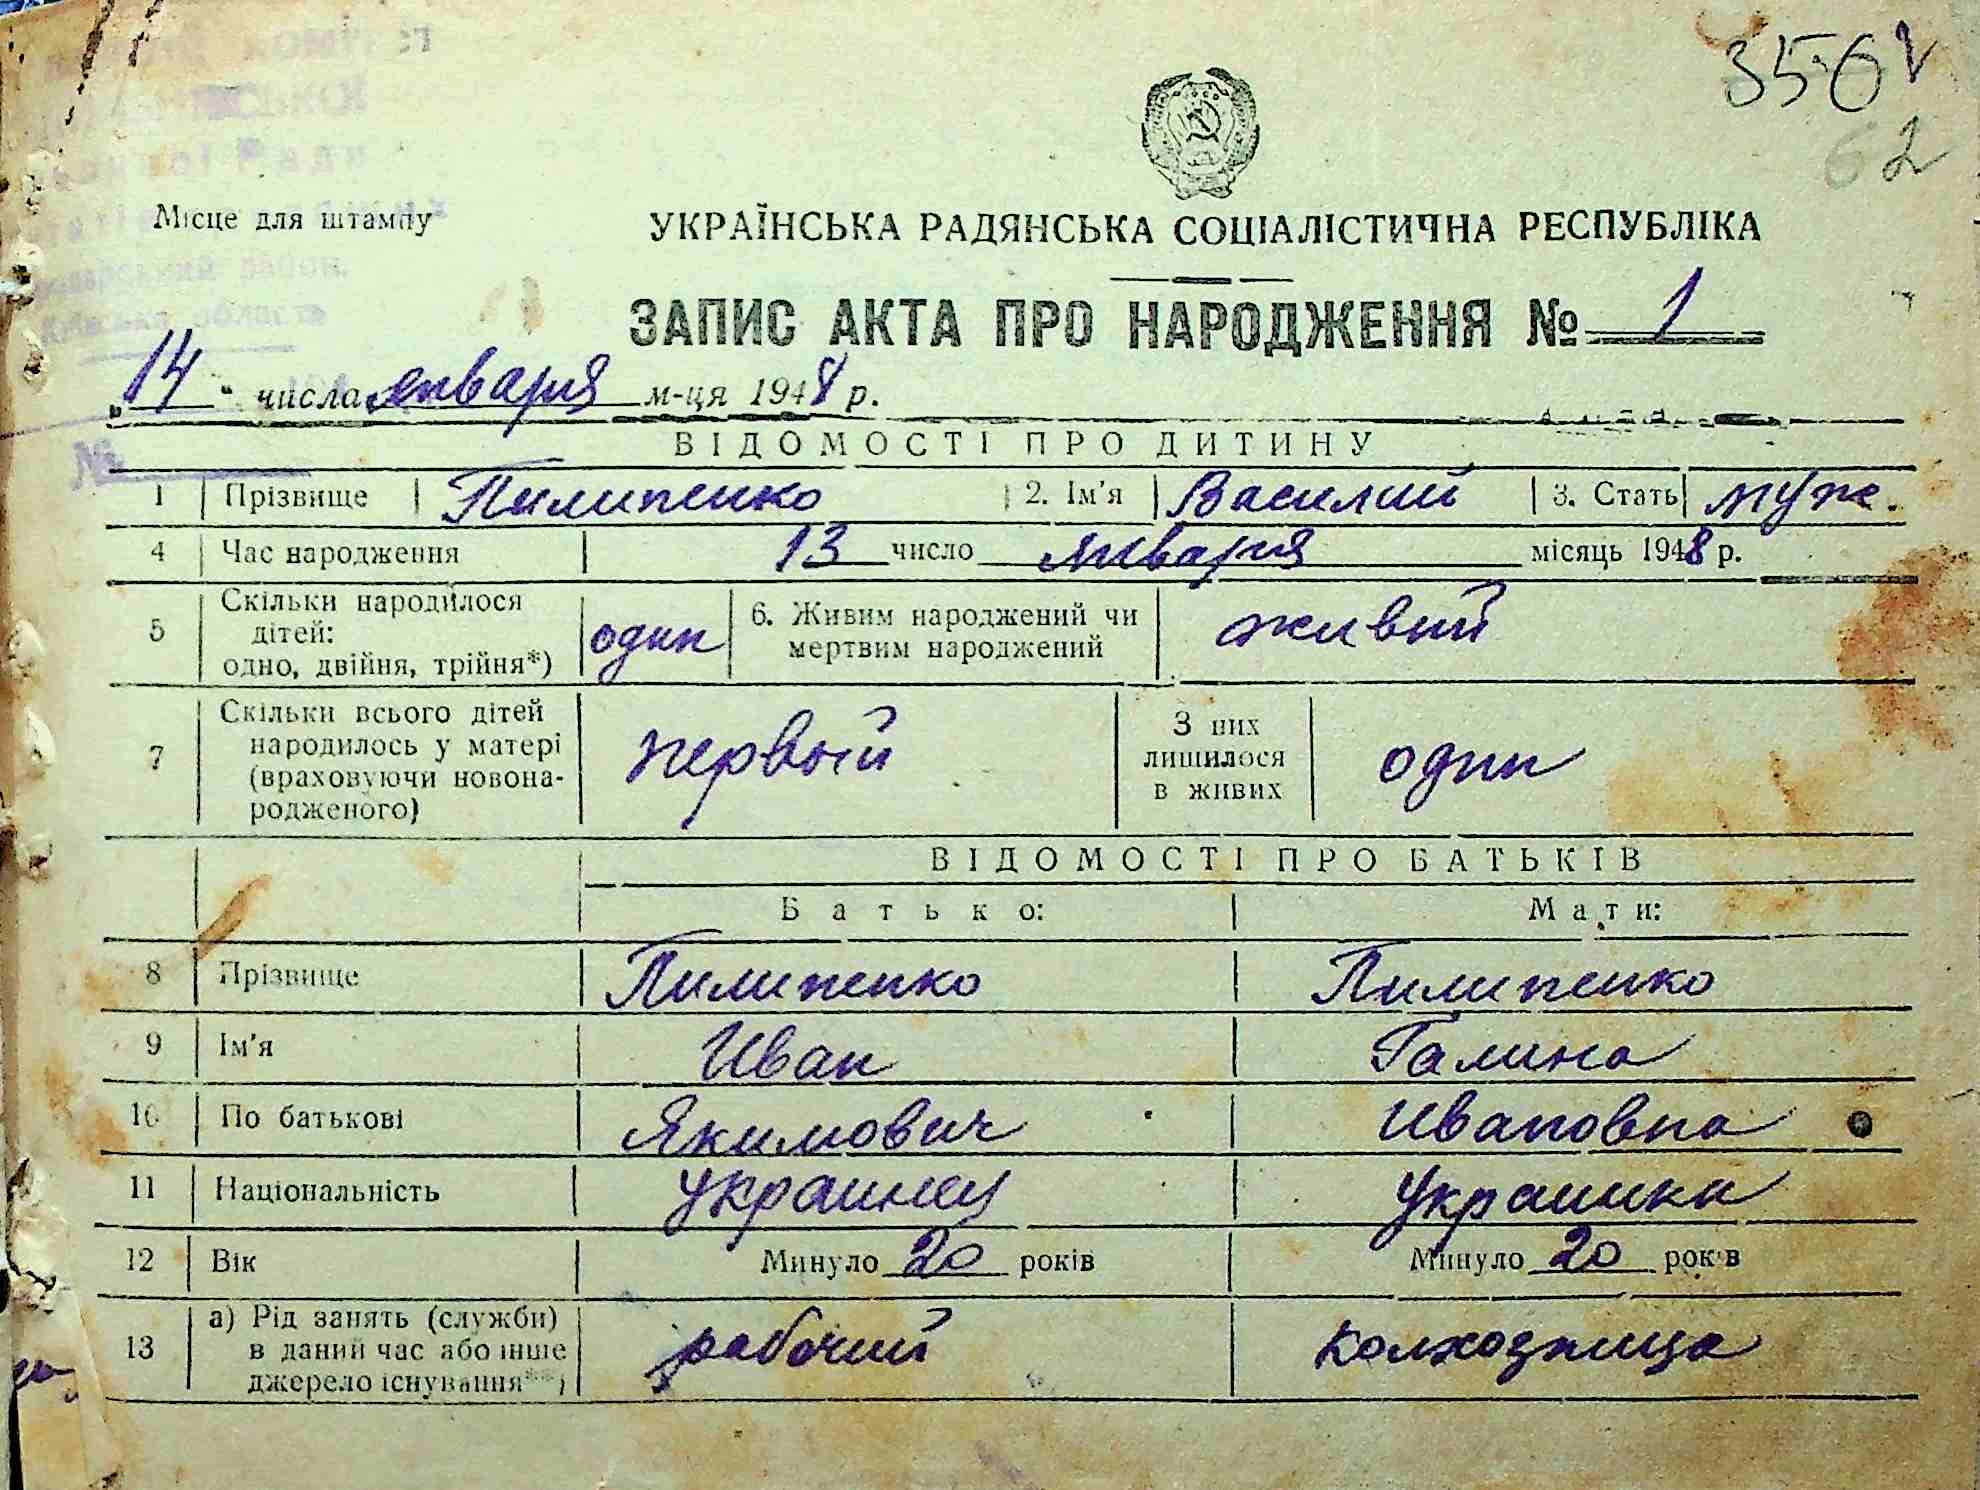 3561
62
Місце для штампу
УКРАЇНСЬКА РАДЯНСЬКА СОЦІАЛІСТИЧНА РЕСПУБЛІКА
район.
область
ЗАПИС АКТА ПРО НАРОДЖЕННЯ № 1
„14“ числа января м-ця 1948 р.
№
ВІДОМОСТІ ПРО ДИТИНУ
1 Прізвище Пилипенко 2. Ім'я Василий 3. Стать муж.
4 Час народження 13 число января місяць 1948 р.
5 Скільки народилося дітей: одно, двійня, трійня*) один 6. Живим народжений чи мертвим народжений живий
7 Скільки всього дітей народилось у матері (враховуючи новонародженого) первый З них лишилося в живих один
ВІДОМОСТІ ПРО БАТЬКІВ
Батько: Мати:
8 Прізвище Пилипенко Пилипенко
9 Ім'я Иван Галина
10 По батькові Якимович Ивановна
11 Національність украинец украинка
12 Вік Минуло 20 років Минуло 20 років
13 а) Рід занять (служби) в даний час або інше джерело існування**) рабочий колхозница